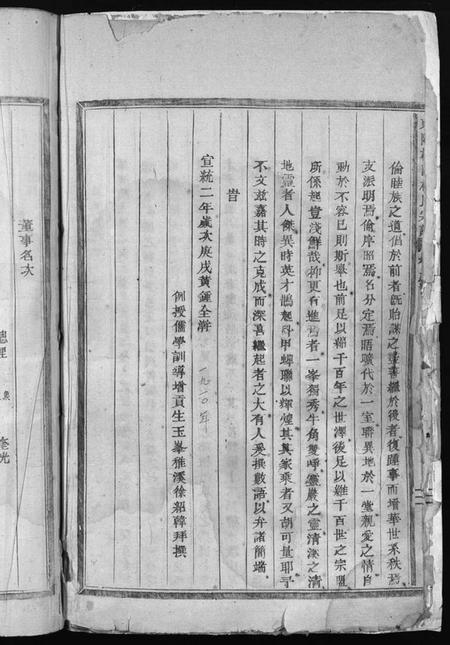 倫睦族之道倡於前者既貽謀之盡善繼於後者復踵事而增華世系秩焉
支派明焉倫序昭焉名分定焉晤曠代於一室聯異地於一堂親愛之情自
動於不容已則斯舉也前足以綿千百年之世澤後足以維千百世之宗風
所係起豈淺鮮哉抑更有進焉者一峯獨秀牛角雙崢靈巖之靈清溪之清
地靈者人傑異時英才鵲起科甲蟬聯以輝煌其家乘者又胡可量耶予
不文兹嘉其時之克成而深喜繼起者之大有人爰撰數語以弁諸簡端
旹
宣統二年歲次庚戌黃鍾全澣
一九一〇年
例授儒學訓導增貢生玉峯雅溪徐紹韓拜撰
董事名次
總理
奎光